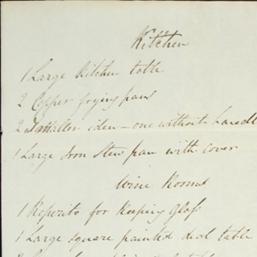 Kitchen
1 Large Kitchen table
2 Copper frying pans
2 Smaller iden - one without handle
1 Large Iron Stew pan with cover
Wine Rooms
1 for Keeping Glass
1 Large square painted deal table